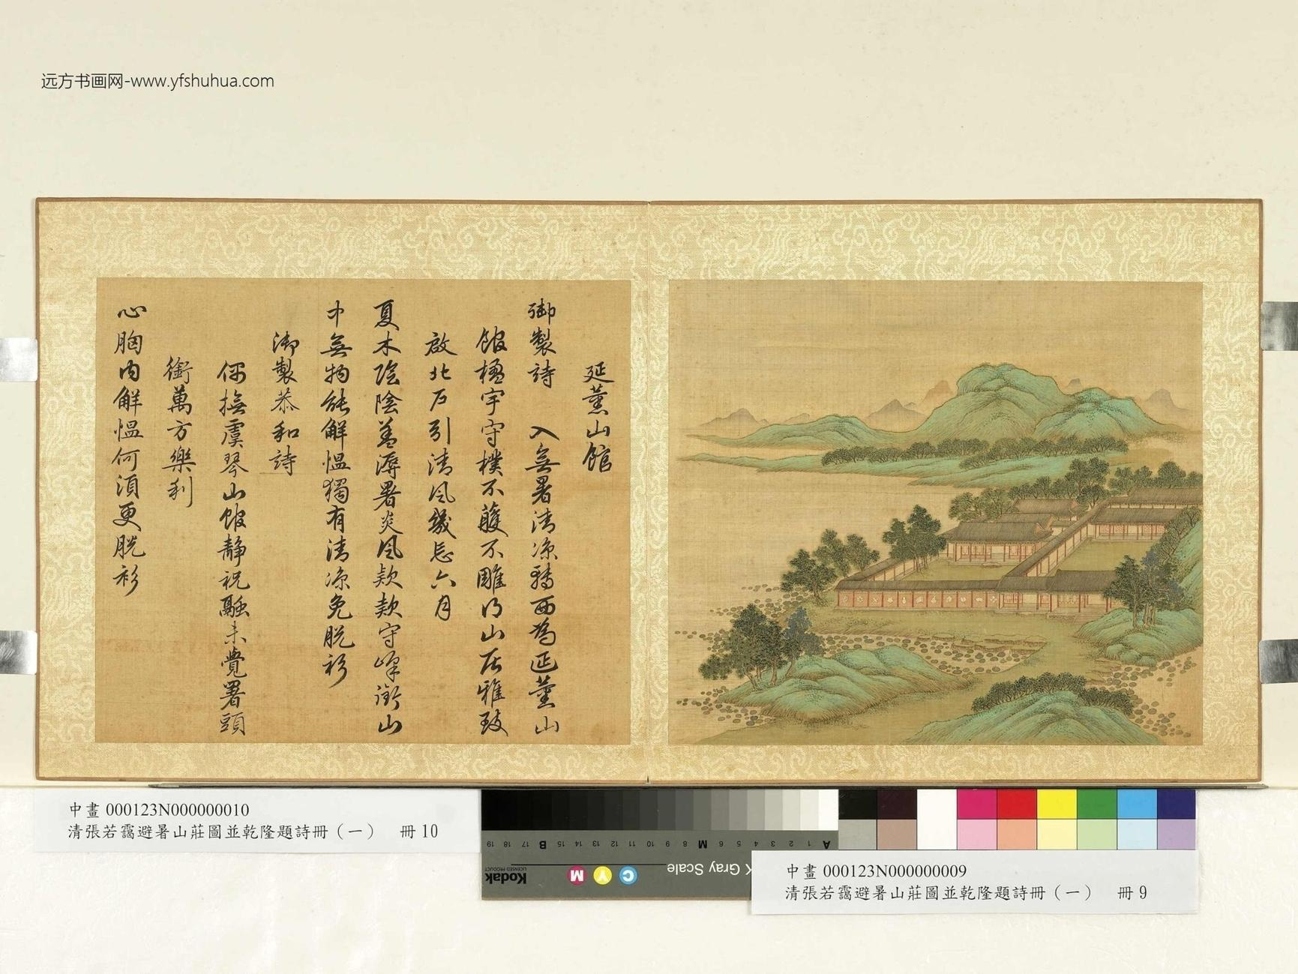 远方书画网-www.yfshuhua.com
延薰山館
御製詩　入無暑清涼轉西為延薰山
館楹宇守樸不雘不雕得山居雅致
啟北戶引清風幾忘六月
夏木陰陰蓋溽暑炎風款款守峰衙山
中無物能解慍獨有清涼免脫衫
御製恭和詩
偶撫虞琴山館靜祝融未覺署頭
銜萬方樂利
心胸內解慍何須更脫衫
中畫 000123N000000010
清張若靄避暑山莊圖並乾隆題詩冊（一）　冊 10
Kodak
LICENSED PRODUCT
Gray Scale
C
Y
M
A 1 2 3 4 5 6 M 8 9 10 11 12 13 14 15 B 17 18 19
中畫 000123N000000009
清張若靄避暑山莊圖並乾隆題詩冊（一）　冊 9